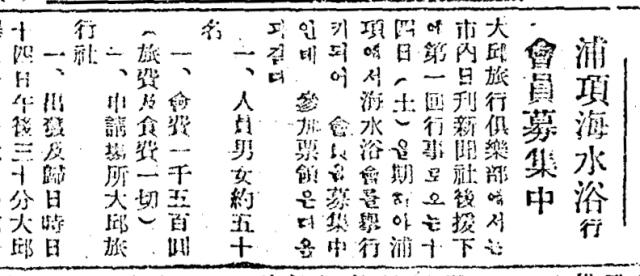 浦項海水浴行
會員募集中
大邱旅行俱樂部에서는
市內日刊新聞社後援下
에第一回行事로오는十
四日(土)을期하야浦
項에서海水浴會를擧行
키되어 會員을募集中
인데 參加要領은다음
과같다
一、人員男女約五十
名
一、會費一千五百圓
(旅費及食費一切)
一、申請場所大邱旅
行社
一、出發及歸日時日
十四日午後三十分大邱